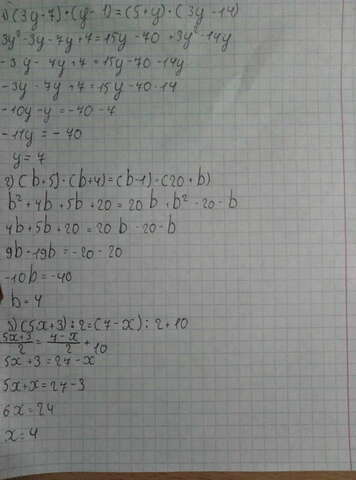 1) (3y-7)·(y-1)=(5+y)·(3y-14)
3y²-3y-7y+7=15y-70+3y²-14y
-3y-7y+7=15y-70-14y
-3y-7y+7=15y-70-14
-10y-y=-70-7
-11y=-70
y=7
2) (b+5)·(b+4)=(b-1)·(20+b)
b²+4b+5b+20=20b+b²-20-b
4b+5b+20=20b-20-b
9b-19b=-20-20
-10b=-40
b=4
3) (5x+3):2=(7-x):2+10
5x+3/2=7-x/2+10
5x+3=27-x
5x+x=27-3
6x=24
x=4